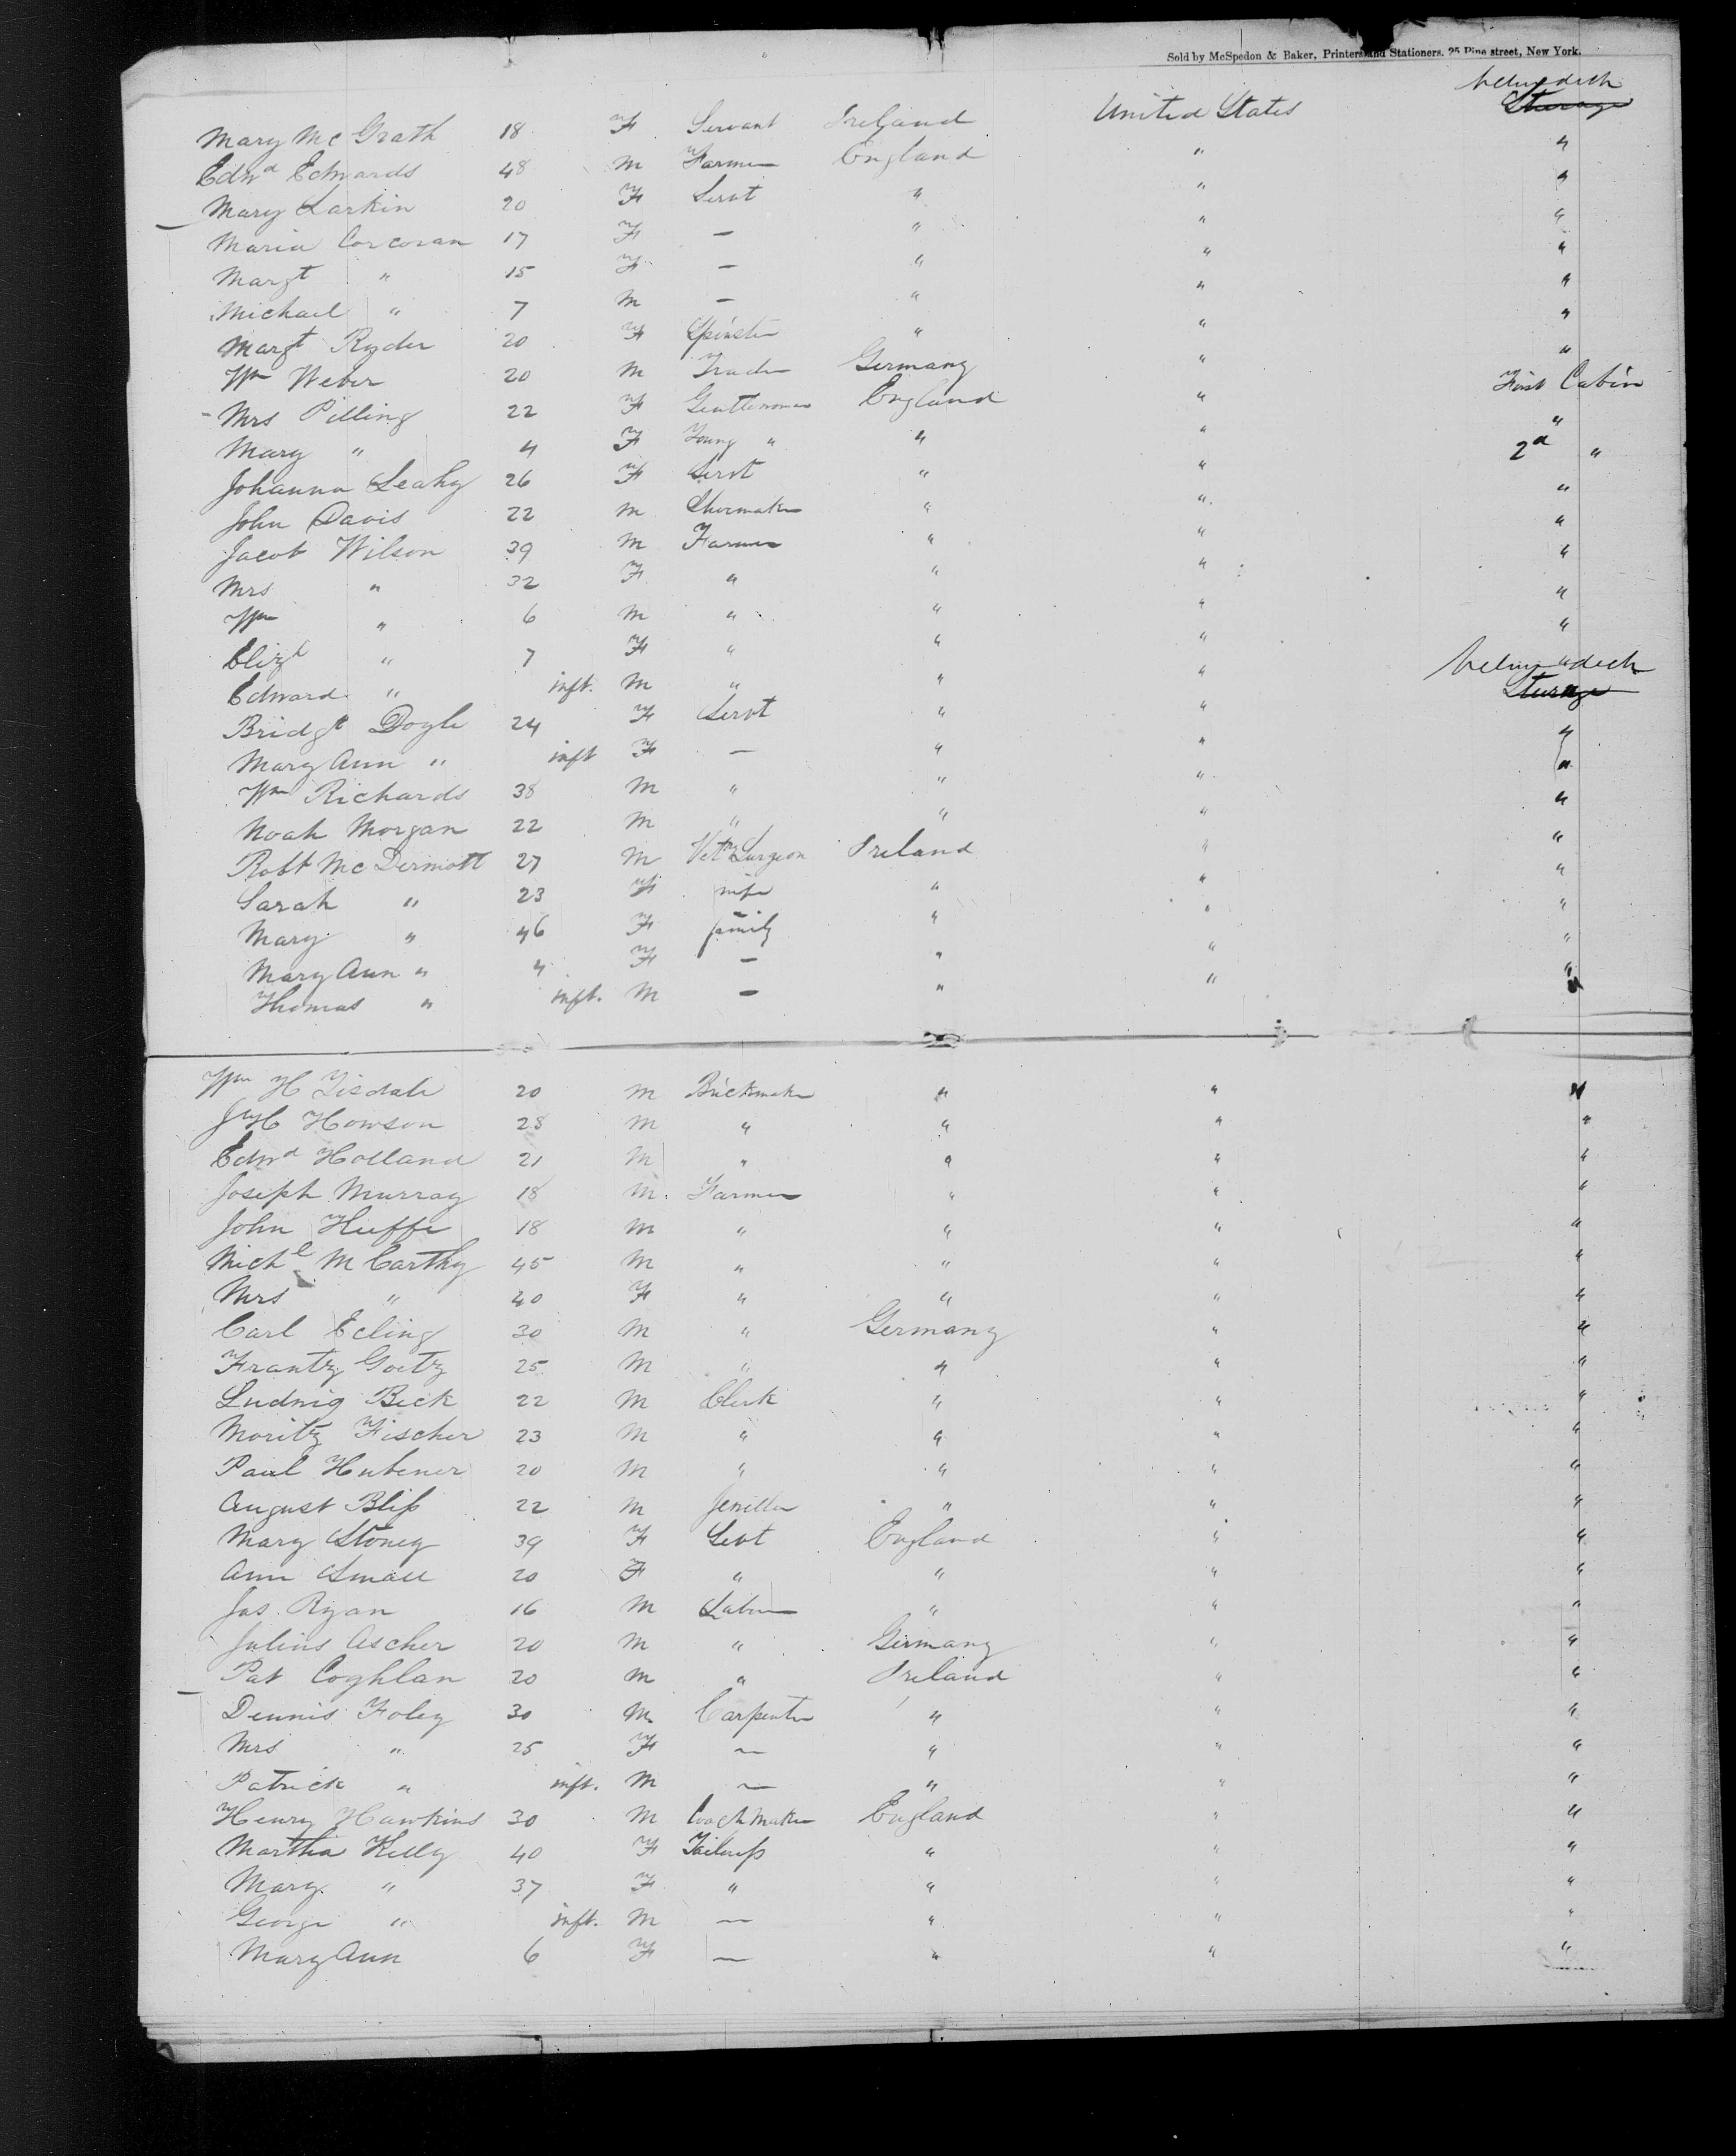 Sold by McSpedon & Baker, Printers and Stationers, 25 Pine street, New York.
Mary McGrath 18 F Servant Ireland United States below deck Sterage
Edwd Edwards 48 M Farmer England " "
Mary Larkin 20 F Servt " " "
Maria Corcoran 17 F — " " "
Margt " 15 F — " " "
Michael " 7 M — " " "
Margt Ryder 20 F Spinster " " "
Wm Weber 20 M Trader Germany " "
Mrs Pilling 22 F Gentlewoman England " First Cabin
Mary " 4 F Young " " " "
Johanna Leahy 26 F Servt " " 2d "
John Davis 22 M Shoemaker " " "
Jacob Wilson 39 M Farmer " " "
Mrs " 32 F " " " "
Wm " 6 M " " " "
Elizh " 7 F " " " "
Edward " inft. M " " " "
Bridgt Doyle 24 F Servt " " below deck Sterage
Mary Ann " inft F — " " "
Wm Richards 38 M " " " "
Noah Morgan 22 M " " " "
Robt McDermott 27 M Vety Surgeon Ireland " "
Sarah " 23 F wife " " "
Mary " 46 F family " " "
Mary Ann " 4 F — " " "
Thomas " inft. M — " " "
Wm H Tisdale 20 M Brickmaker " " "
Jn H Howson 28 M " " " "
Edwd Holland 21 M " " " "
Joseph Murray 18 M Farmer " " "
John Huffe 18 M " " " "
Michl McCarthy 45 M " " " "
Mrs " 40 F " " " "
Carl Ecling 30 M " Germany " "
Frantz Goetz 25 M " " " "
Ludwig Beck 22 M Clerk " " "
Moritz Fischer 23 M " " " "
Paul Hubener 20 M " " " "
August Bliss 22 M Jeweller " " "
Mary Stoney 39 F Servt England " "
Ann Small 20 F " " " "
Jas Ryan 16 M Labour " " "
Julius Ascher 20 M " Germany " "
Pat Coghlan 20 M " Ireland " "
Dennis Foley 30 M Carpenter " " "
Mrs " 25 F — " " "
Patrick " inft. M — " " "
Henry Hawkins 30 M Coachmaker England " "
Martha Kelly 40 F Tailoress " " "
Mary " 37 F " " " "
George " inft. M — " " "
Mary Ann 6 F — " " "